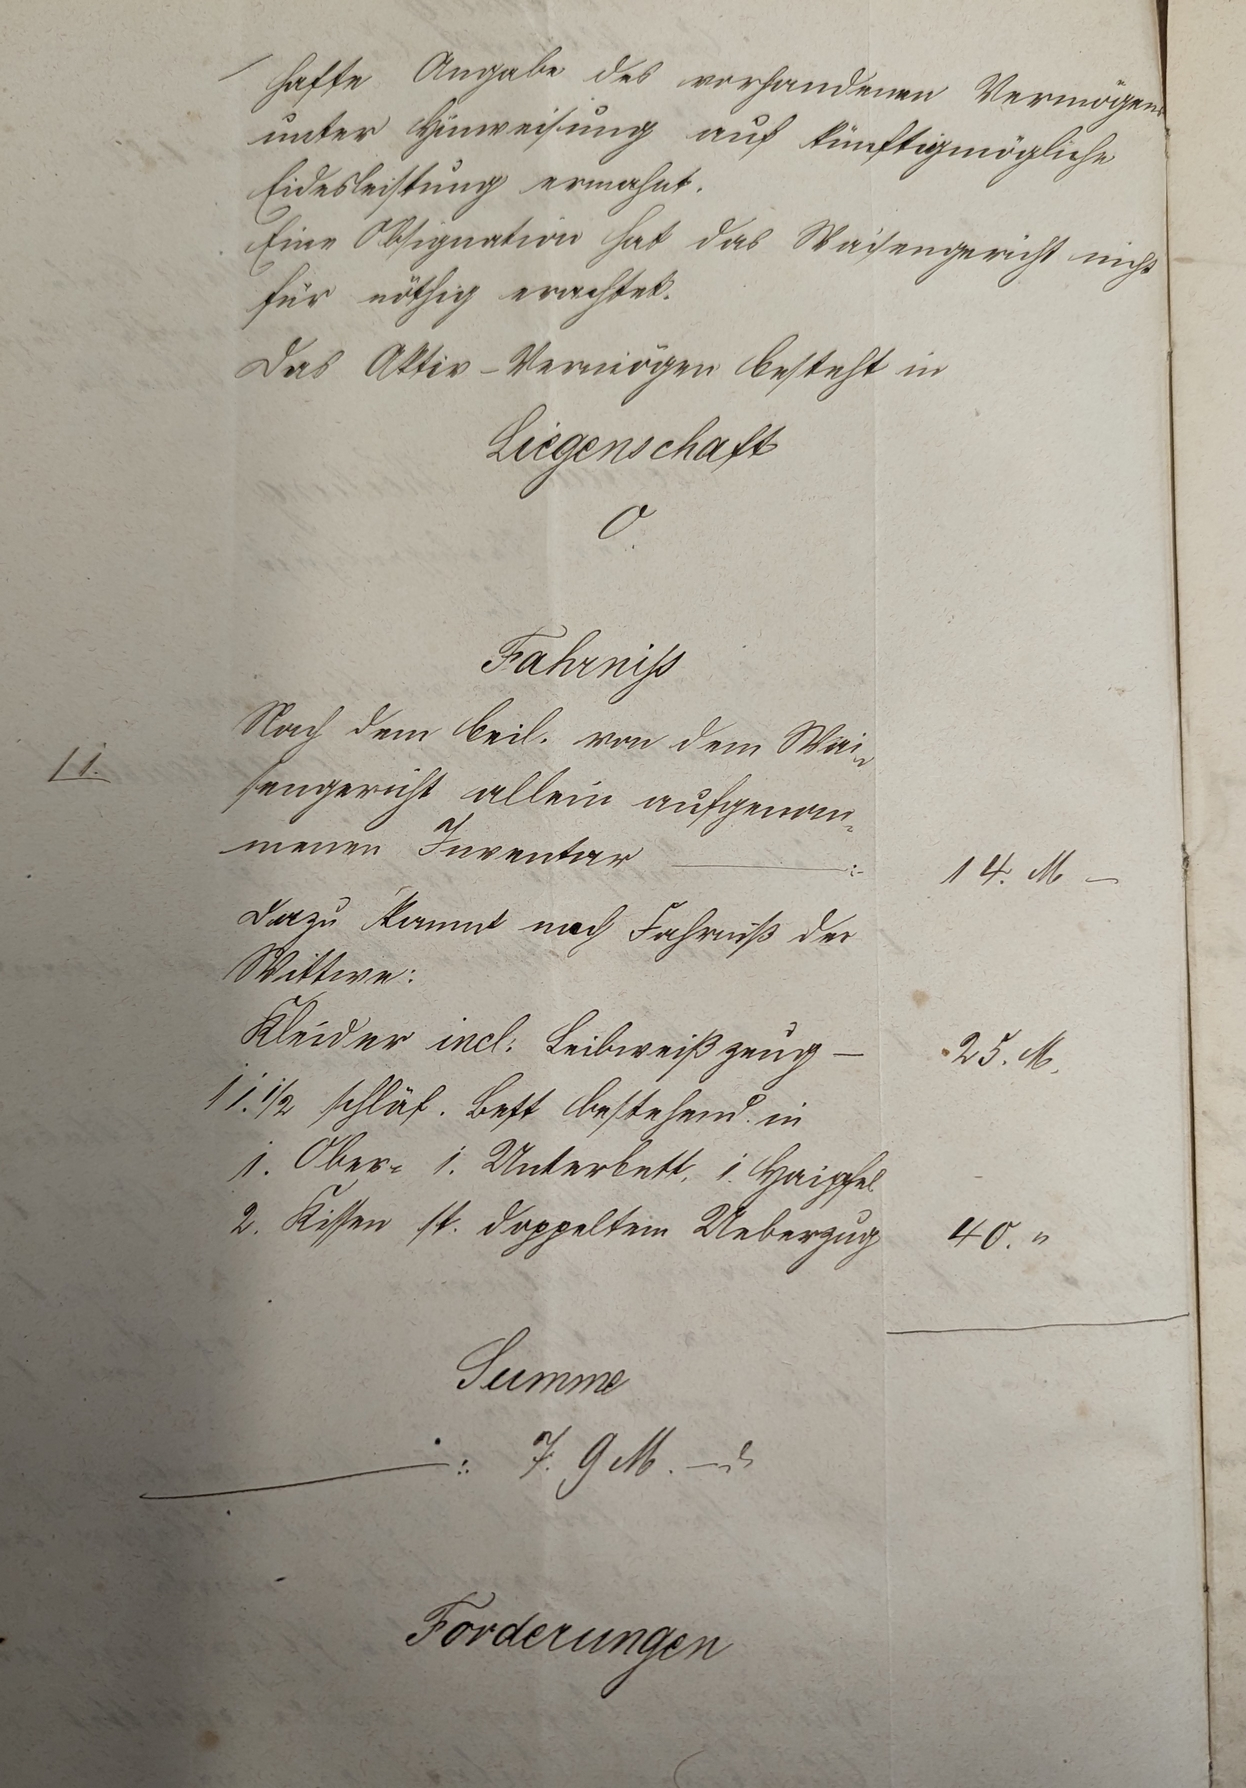 hafte Angabe des vorhandenen Vermögens
unter Hinweisung auf künftigmögliche
Eidesleistung ermahnt.
Eine Obsignation hat das Waisengericht nicht
für nöthig erachtet.
Das Aktiv-Vermögen besteht in
Liegenschaft
0
Fahrniss
Nach dem beil. von dem Wai-
11.
sengericht allein aufgenom-
menen Inventar —: 14. M —
Dazu kommt noch Fahrniß der
Wittwe:
Kleider incl: Leibweißzeug — 25. M.
1 1.1/2 schläf. Bett bestehend in
1. Ober- 1. Unterbett, 1. Haipfel
2. Kissen st. doppeltem Ueberzug 40. "
Summe
—: 7.9 M. —
Forderungen